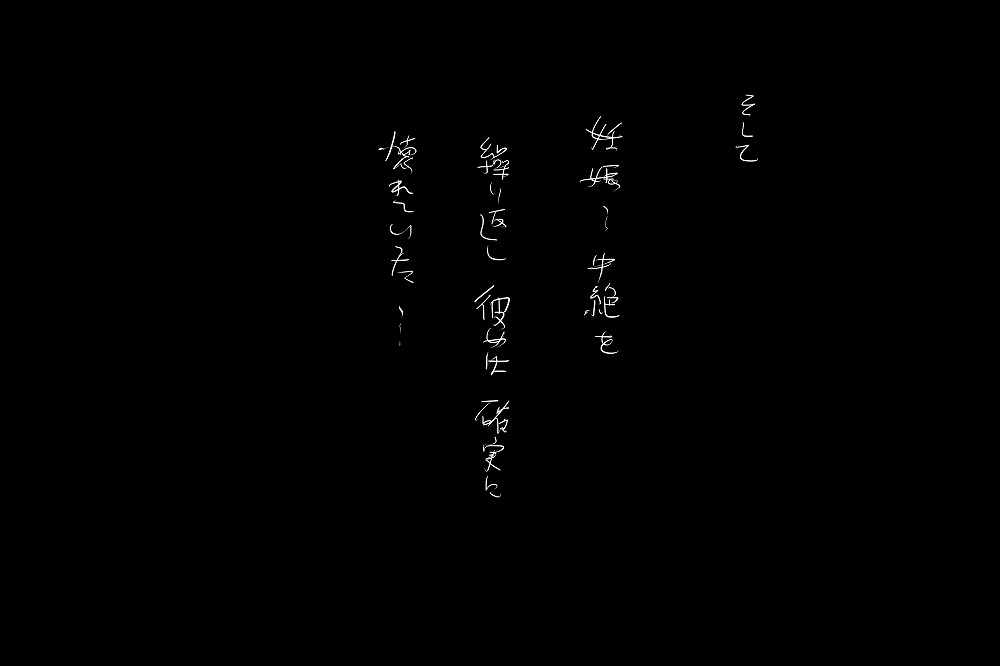 そして
妊娠〜中絶を
繰り返し 彼女は 確実に
壊れていた〜